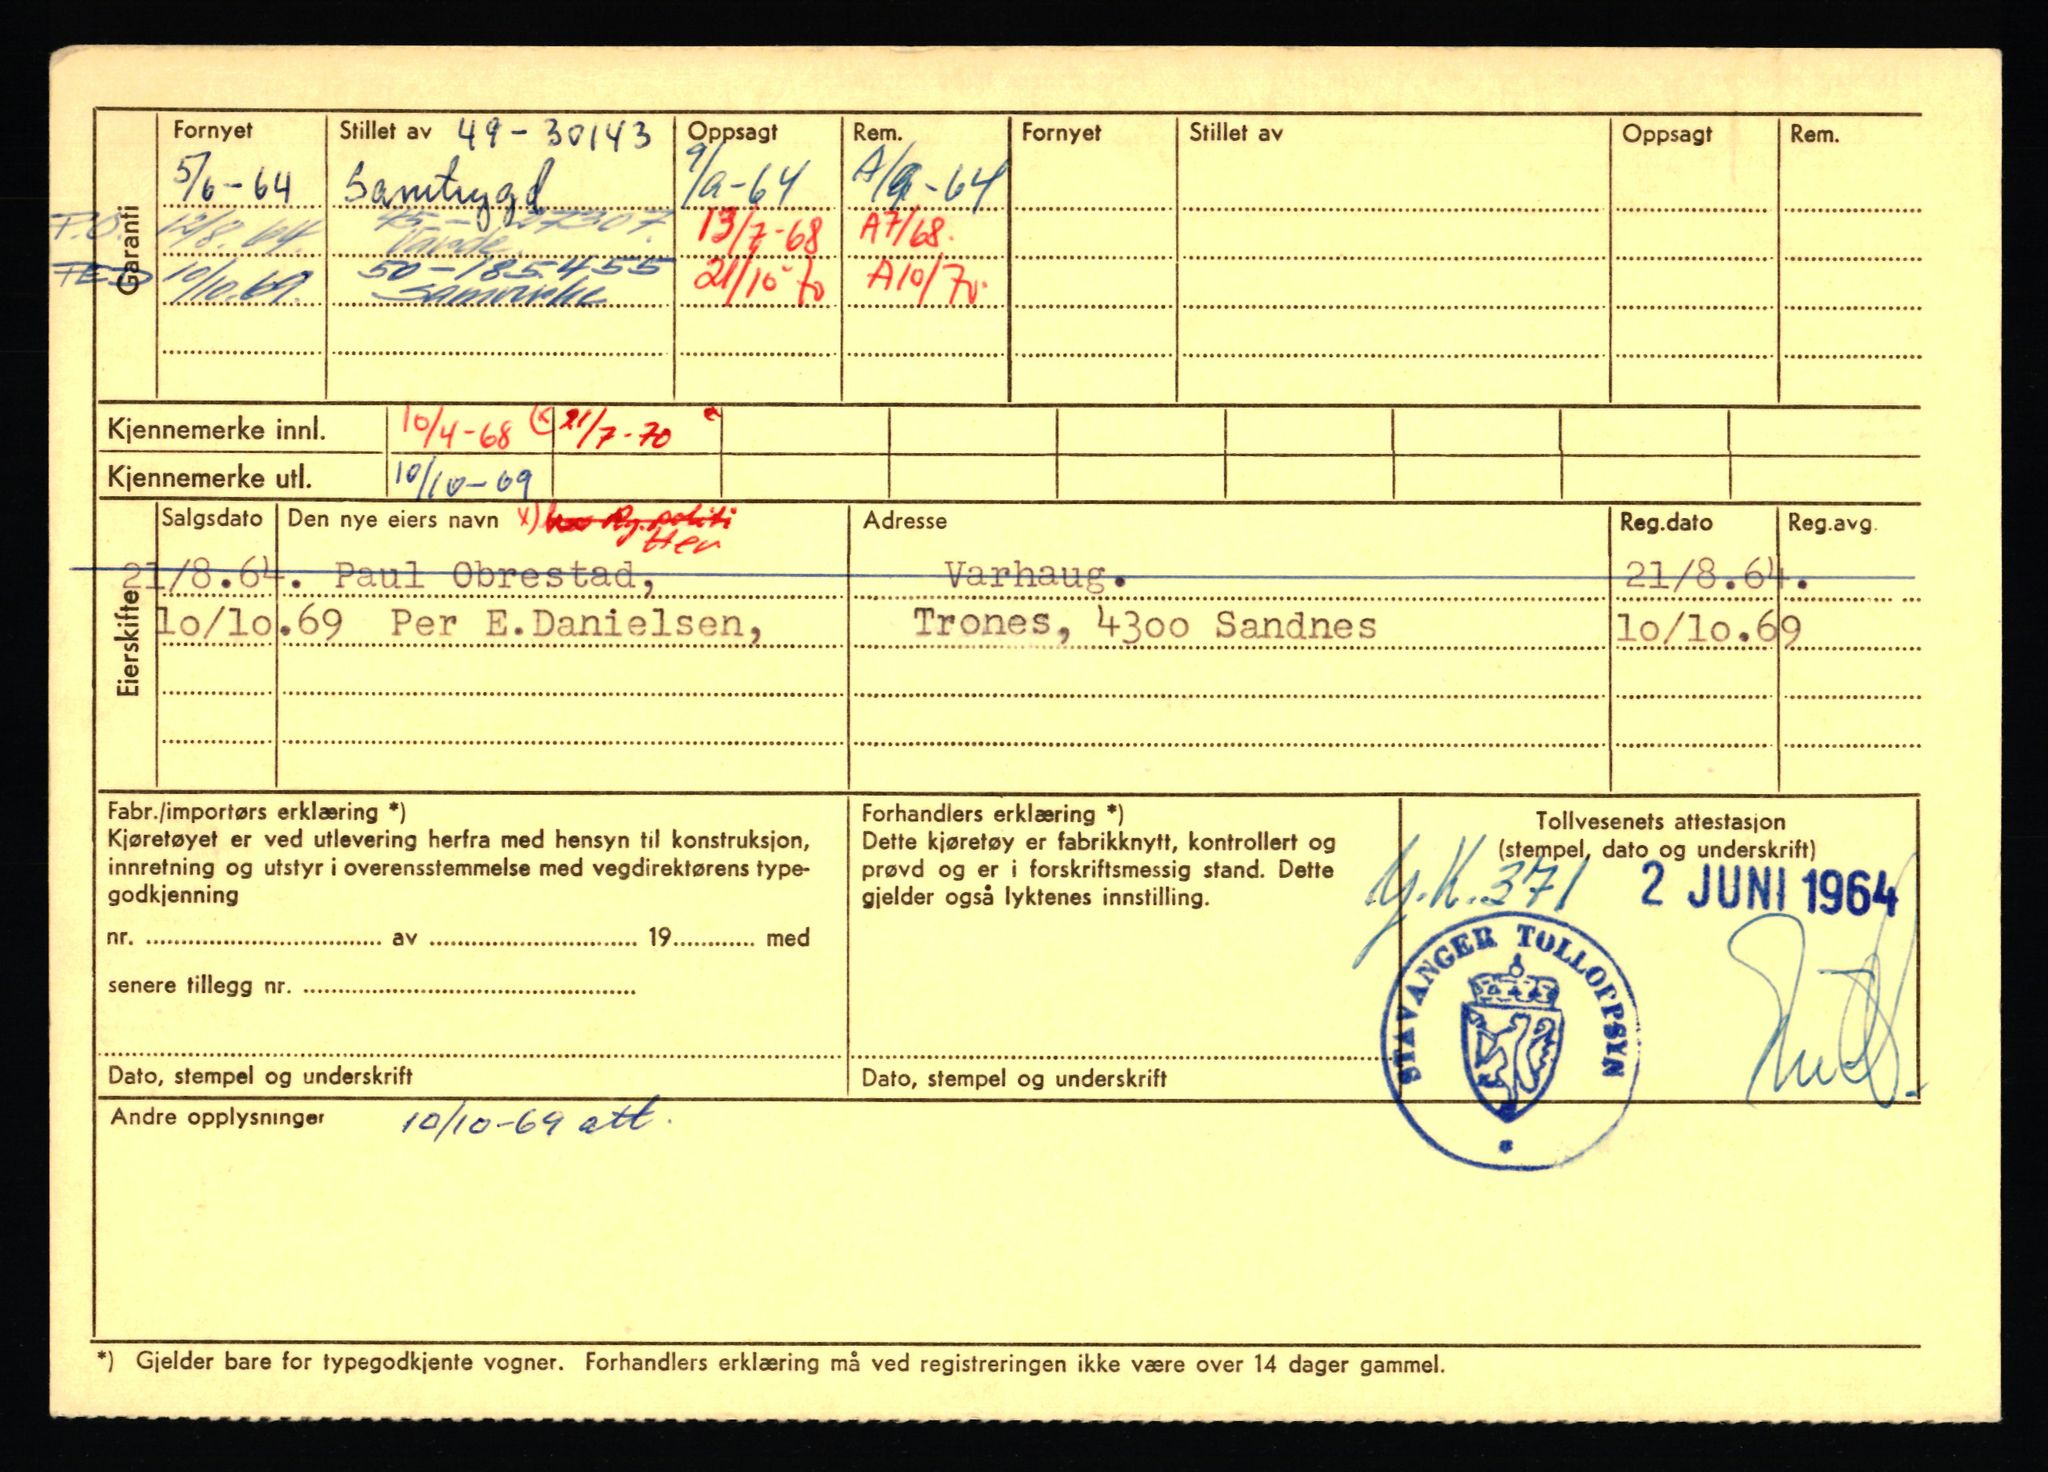 Garanti
Fornyet Stillet av 49-30143 Oppsagt Rem. Fornyet Stillet av Oppsagt Rem.
5/6-64 Samtrygd 9/9-64 A/9-64
P.O. 12/8.64. 45-27307. 13/7-68 A7/68.
10/10.69. 50-185455 21/10-70 A10/70.
Samvirke
Kjennemerke innl. 10/4-68 (x 21/7-70
Kjennemerke utl. 10/10-69
Eierskifte
Salgsdato Den nye eiers navn x) Adresse Reg.dato Reg.avg.
21/8.64. Paul Obrestad, Varhaug. 21/8.64.
lo/lo.69 Per E.Danielsen, Trones, 43oo Sandnes lo/lo.69
Fabr./importørs erklæring *)
Kjøretøyet er ved utlevering herfra med hensyn til konstruksjon,
innretning og utstyr i overensstemmelse med vegdirektørens type-
godkjenning
nr. av 19 med
senere tillegg nr.
Dato, stempel og underskrift
Forhandlers erklæring *)
Dette kjøretøy er fabrikknytt, kontrollert og
prøvd og er i forskriftsmessig stand. Dette
gjelder også lyktenes innstilling.
Dato, stempel og underskrift
Tollvesenets attestasjon
(stempel, dato og underskrift)
y.K.371 2 JUNI 1964
STAVANGER TOLLOPPSYN
Andre opplysninger 10/10-69 att.
*) Gjelder bare for typegodkjente vogner. Forhandlers erklæring må ved registreringen ikke være over 14 dager gammel.